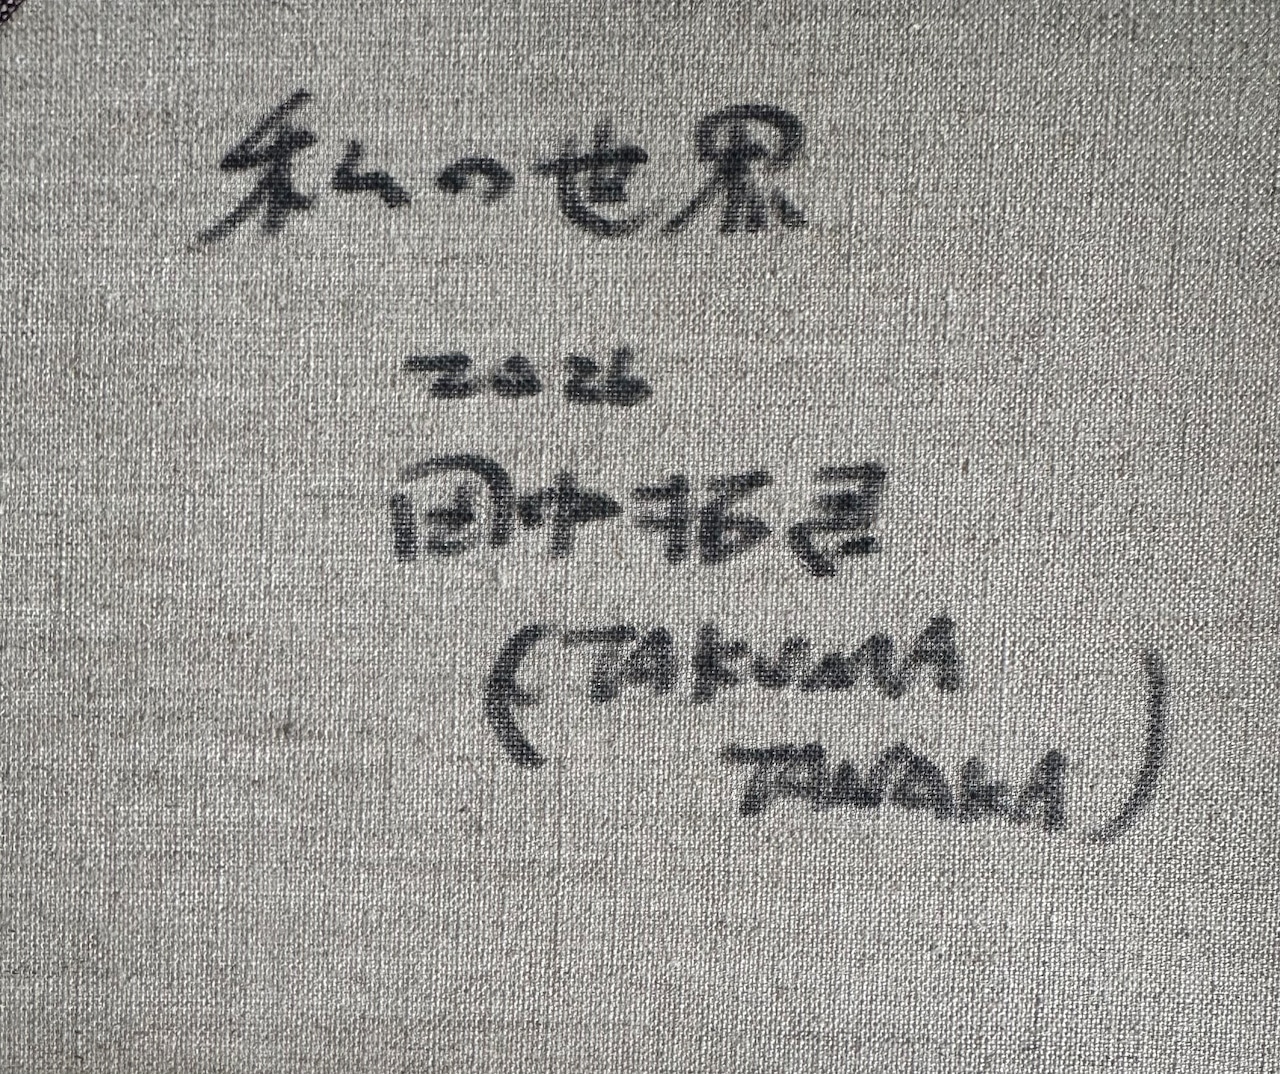 私の世界
2026
田中拓馬
(TAKUMA
TANAKA)